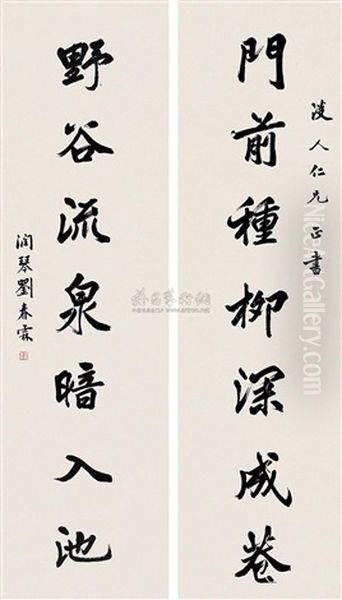 門前種柳深成巷
凌人仁兄正書
野谷流泉暗入池
潤琴劉春霖
www.artron.net
AllPaintingsStore.com